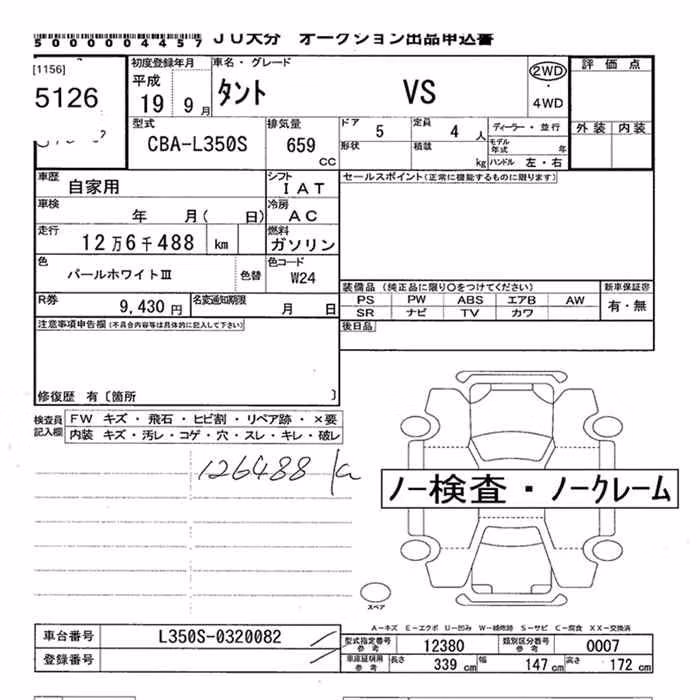 5000004457 JU大分 オークション出品申込書
[1156]
5126
初度登録年月 平成 19 9月
車名・グレード タント VS
2WD ・ 4WD
評価点
外装 内装
型式 CBA-L350S
排気量 659 CC
ドア 5
定員 4 人
形状
積載 kg
ディーラー・並行
モデル年式 年
ハンドル 左・右
車歴 自家用
シフト IAT
セールスポイント(正常に機能するものに限ります)
車検 年 月( 日)
冷房 AC
走行 12万6千488 km
燃料 ガソリン
色 パールホワイトⅢ 色替
色コード W24
装備品 (純正品に限り○をつけてください)
新車保証書 有・無
PS PW ABS エアB AW
SR ナビ TV カワ
R券 9,430 円
名変通知期限 月 日
後日品
注意事項申告欄(不具合内容等は具体的に記入して下さい)
修復歴 有〔箇所 〕
検査員記入欄
FW キズ・飛石・ヒビ割・リペア跡・×要
内装 キズ・汚レ・コゲ・穴・スレ・キレ・破レ
126488
ノー検査・ノークレーム
スペア
A−キズ E−エクボ U−凹み W−補修跡 S−サビ C−腐食 XX−交換済
車台番号 L350S-0320082
登録番号
型式指定番号 参考 12380
類別区分番号 参考 0007
車庫証明用 参考 長さ 339 cm 幅 147 cm 高さ 172 cm